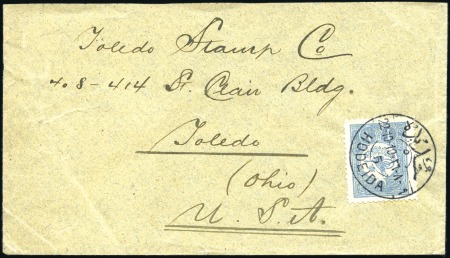 Toledo Stamp Co
408-414 St. Clair Bldg.
Toledo
(Ohio)
U.S.A.
HODEIDA